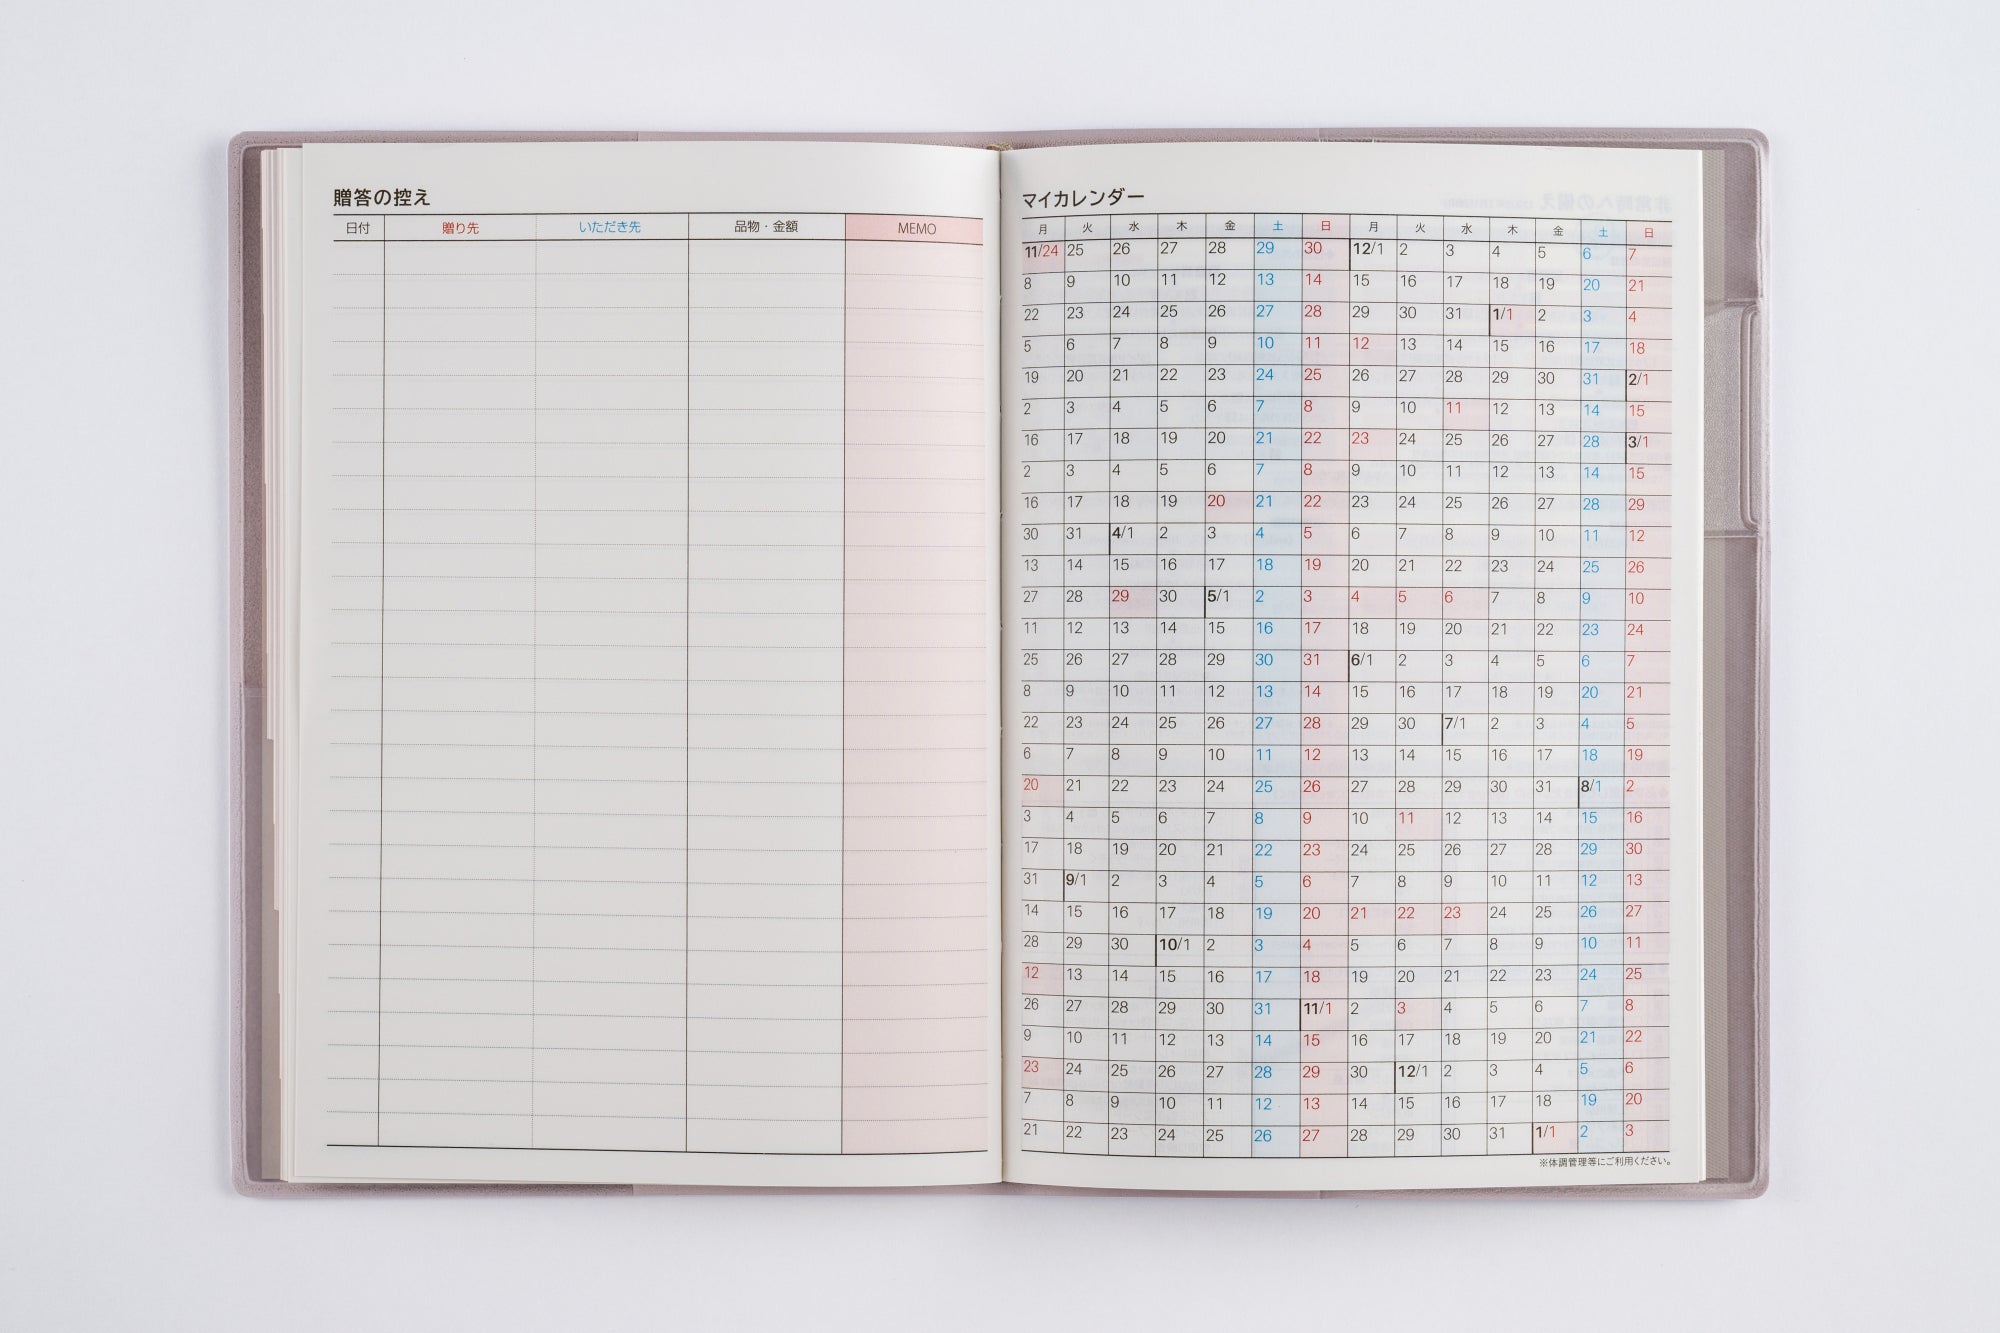 贈答の控え
日付 贈り先 いただき先 品物・金額 MEMO
マイカレンダー
月 火 水 木 金 土 日 月 火 水 木 金 土 日
11/24 25 26 27 28 29 30 12/1 2 3 4 5 6 7
8 9 10 11 12 13 14 15 16 17 18 19 20 21
22 23 24 25 26 27 28 29 30 31 1/1 2 3 4
5 6 7 8 9 10 11 12 13 14 15 16 17 18
19 20 21 22 23 24 25 26 27 28 29 30 31 2/1
2 3 4 5 6 7 8 9 10 11 12 13 14 15
16 17 18 19 20 21 22 23 24 25 26 27 28 3/1
2 3 4 5 6 7 8 9 10 11 12 13 14 15
16 17 18 19 20 21 22 23 24 25 26 27 28 29
30 31 4/1 2 3 4 5 6 7 8 9 10 11 12
13 14 15 16 17 18 19 20 21 22 23 24 25 26
27 28 29 30 5/1 2 3 4 5 6 7 8 9 10
11 12 13 14 15 16 17 18 19 20 21 22 23 24
25 26 27 28 29 30 31 6/1 2 3 4 5 6 7
8 9 10 11 12 13 14 15 16 17 18 19 20 21
22 23 24 25 26 27 28 29 30 7/1 2 3 4 5
6 7 8 9 10 11 12 13 14 15 16 17 18 19
20 21 22 23 24 25 26 27 28 29 30 31 8/1 2
3 4 5 6 7 8 9 10 11 12 13 14 15 16
17 18 19 20 21 22 23 24 25 26 27 28 29 30
31 9/1 2 3 4 5 6 7 8 9 10 11 12 13
14 15 16 17 18 19 20 21 22 23 24 25 26 27
28 29 30 10/1 2 3 4 5 6 7 8 9 10 11
12 13 14 15 16 17 18 19 20 21 22 23 24 25
26 27 28 29 30 31 11/1 2 3 4 5 6 7 8
9 10 11 12 13 14 15 16 17 18 19 20 21 22
23 24 25 26 27 28 29 30 12/1 2 3 4 5 6
7 8 9 10 11 12 13 14 15 16 17 18 19 20
21 22 23 24 25 26 27 28 29 30 31 1/1 2 3
※体調管理等にご利用ください。